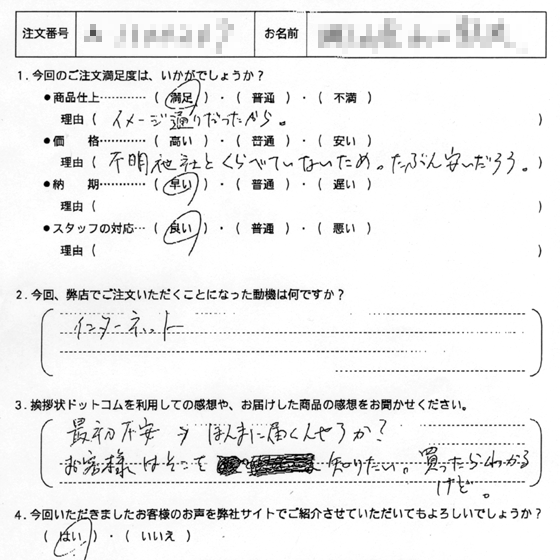 注文番号 お名前
1．今回のご注文満足度は、いかがでしょうか？
●商品仕上…………（ 満足 ）・（ 普通 ）・（ 不満 ）
理由（ イメージ通りだったから。 ）
●価　　格…………（ 高い ）・（ 普通 ）・（ 安い ）
理由（ 不明他社とくらべていないため。たぶん安いだろう。 ）
●納　　期…………（ 早い ）・（ 普通 ）・（ 遅い ）
理由（ ）
●スタッフの対応…（ 良い ）・（ 普通 ）・（ 悪い ）
理由（ ）
2．今回、弊店でご注文いただくことになった動機は何ですか？
インターネット
3．挨拶状ドットコムを利用しての感想や、お届けした商品の感想をお聞かせください。
最初不安 → ほんまに届くんやろか？
お客様はそこを 知りたい。買ったらわかる
けど。
4．今回いただきましたお客様のお声を弊社サイトでご紹介させていただいてもよろしいでしょうか？
（ はい ）・（ いいえ ）